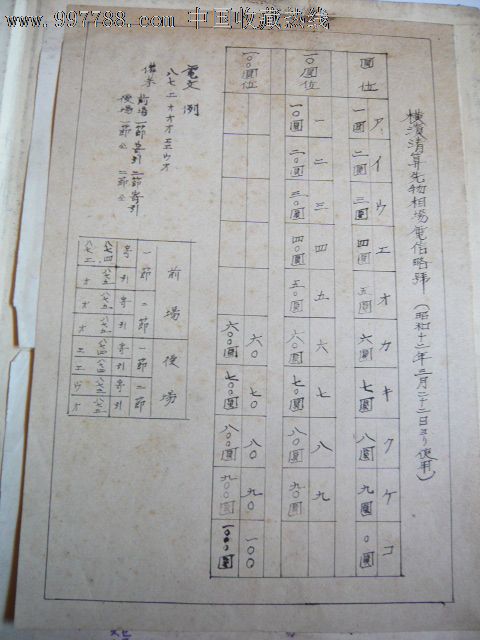 www.997788.com 中国收藏热线
横濱清算先物相場電信略號（昭和十二年三月二十二日ヨリ使用）
圓位
ア 一圓
イ 二圓
ウ 三圓
エ 四圓
オ 五圓
カ 六圓
キ 七圓
ク 八圓
ケ 九圓
コ 〇圓
一〇圓位
一 一〇圓
二 二〇圓
三 三〇圓
四 四〇圓
五 五〇圓
六 六〇圓
七 七〇圓
八 八〇圓
九 九〇圓
一〇〇圓位
六〇 六〇〇圓
七〇 七〇〇圓
八〇 八〇〇圓
九〇 九〇〇圓
一〇〇 一〇〇〇圓
電文例
八七エオオオエエウオ
備考 前場一節寄引二節寄引
後場一節仝 二節仝
前場 後場
一節 二節 一節 二節
寄 引 寄 引 寄 引 寄 引
八七四 八七五 八七五 八七五 八七四 八七四 八七三 八七五
八七エ オ オ オ エ エ ウ オ